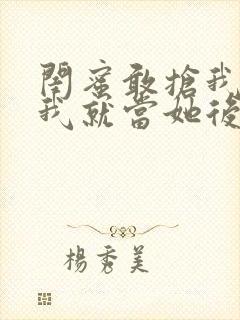 閨蜜敢搶我
我就當她後
楊秀美